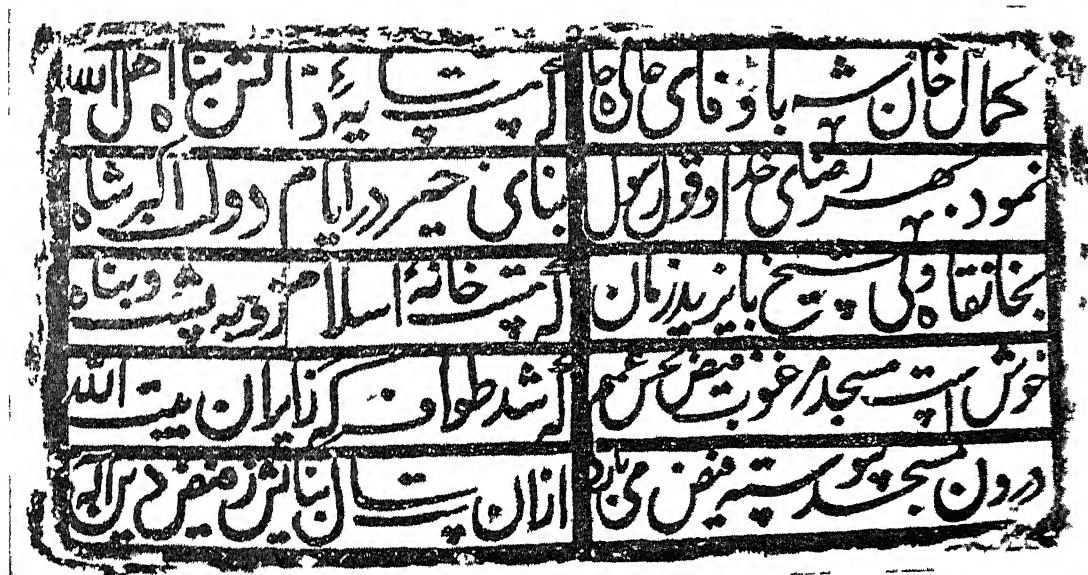 کمال خان شه با وفای عالی جاه که هست سایهٔ ذاتش پناه اهل الله
نمود بهر رضای خدا و قول رسول بنای خیر در ایام دولت اکبر شاه
بخانقاه ولی شیخ بایزید زمان که هست خانهٔ اسلام زو به پشت و پناه
خوش است مسجد مرغوب فیض بخش که شد طواف گه زایران بیت الله
درون مسجد پیوسته فیض می بارد ازان ست سال بنایش ز فیض